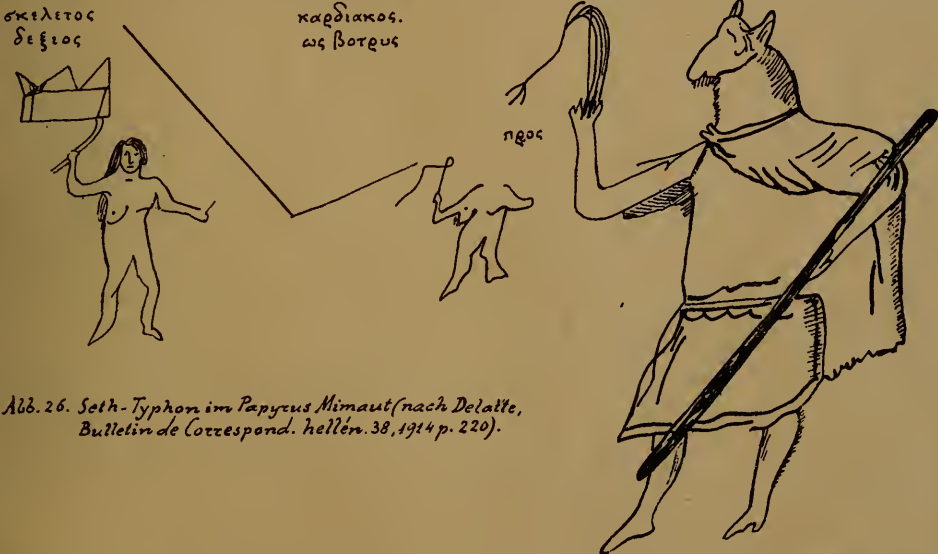 σκελετος
δεξιος
καρδιακος.
ως βοτρυς
προς
Abb. 26. Seth-Typhon im Papyrus Mimaut (nach Delatte,
Bulletin de Correspond. hellén. 38, 1914 p. 220).